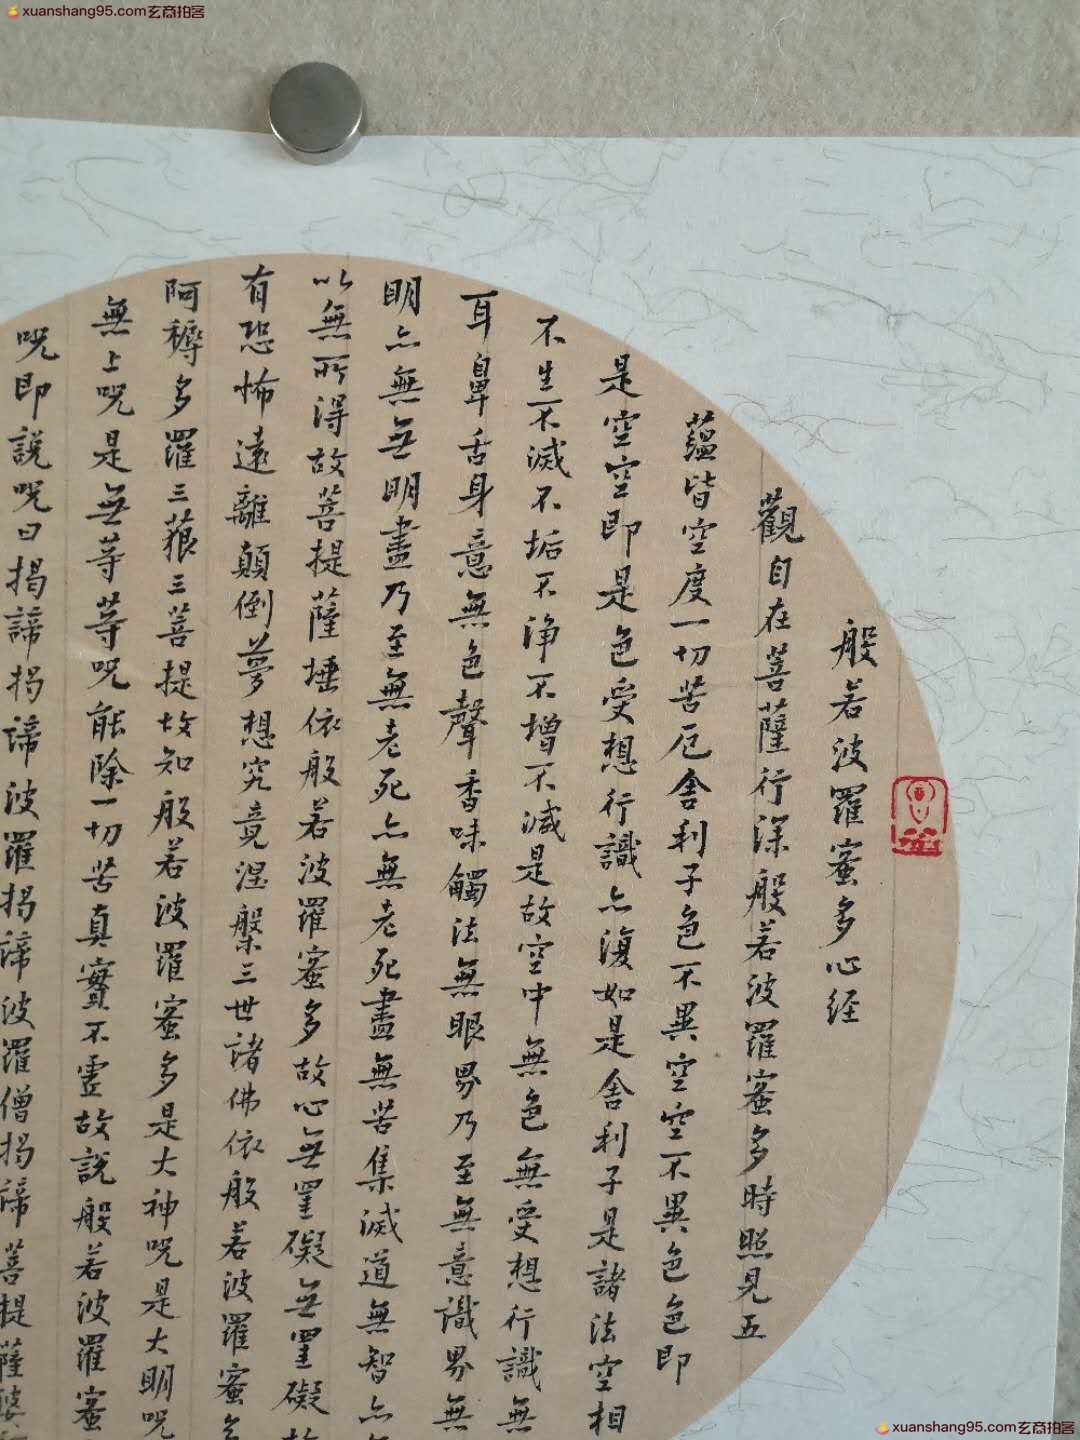 xuanshang95.com玄商拍客
般若波羅蜜多心経
觀自在菩薩行深般若波羅蜜多時照見五
蘊皆空度一切苦厄舍利子色不異空空不異色色即
是空空即是色受想行識亦復如是舍利子是諸法空相
不生不滅不垢不浄不增不減是故空中無色無受想行識無
耳鼻舌身意無色聲香味觸法無眼界乃至無意識界無
明亦無无明盡乃至無老死亦無老死盡無苦集滅道無智亦
以無所得故菩提薩埵依般若波羅蜜多故心无罣礙无罣礙
有恐怖遠離顛倒夢想究竟涅槃三世諸佛依般若波羅蜜
阿耨多羅三藐三菩提故知般若波羅蜜多是大神呪是大明呪
無上呪是无等等呪能除一切苦真實不虛故說般若波羅蜜
呪即說呪曰揭諦揭諦波羅揭諦波羅僧揭諦菩提薩婆
xuanshang95.com玄商拍客